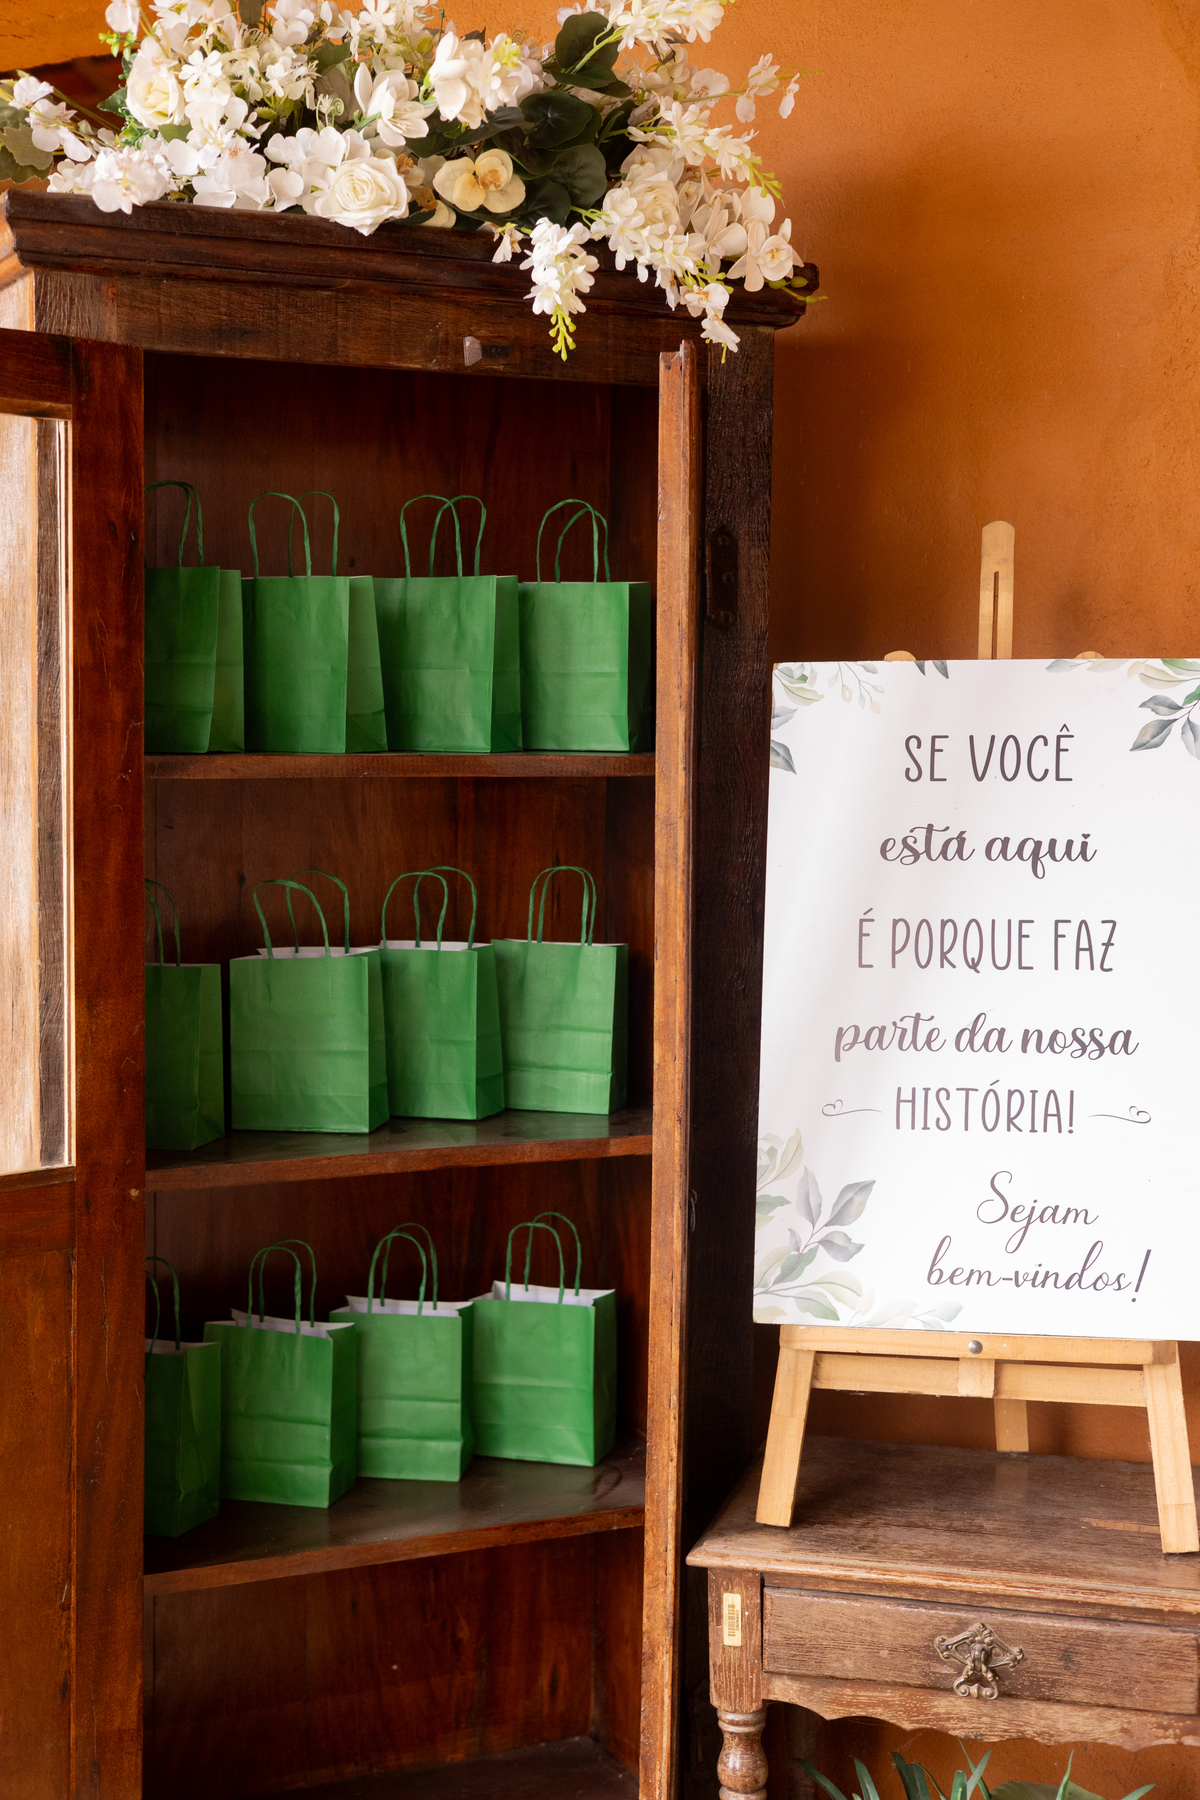 SE VOCÊ
está aqui
É PORQUE FAZ
parte da nossa
HISTÓRIA!
Sejam
bem-vindos!